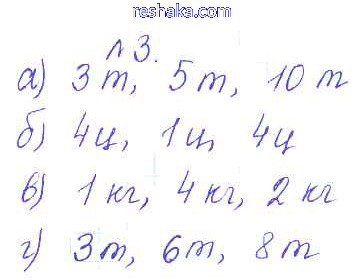 reshaka.com
№3.
а) 3 т, 5 т, 10 т
б) 4 ц, 1 ц, 4 ц
в) 1 кг, 4 кг, 2 кг
г) 3 т, 6 т, 8 т